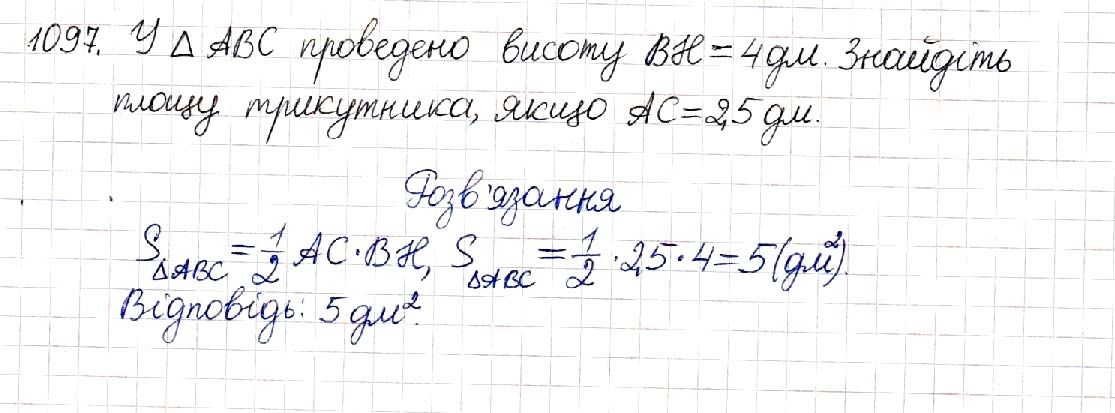 1097. У △ ABC проведено висоту BH = 4 дм. Знайдіть
площу трикутника, якщо AC = 2,5 дм.
Розв'язання
S△ABC = 1/2 AC · BH, S△ABC = 1/2 · 2,5 · 4 = 5 (дм²).
Відповідь: 5 дм².